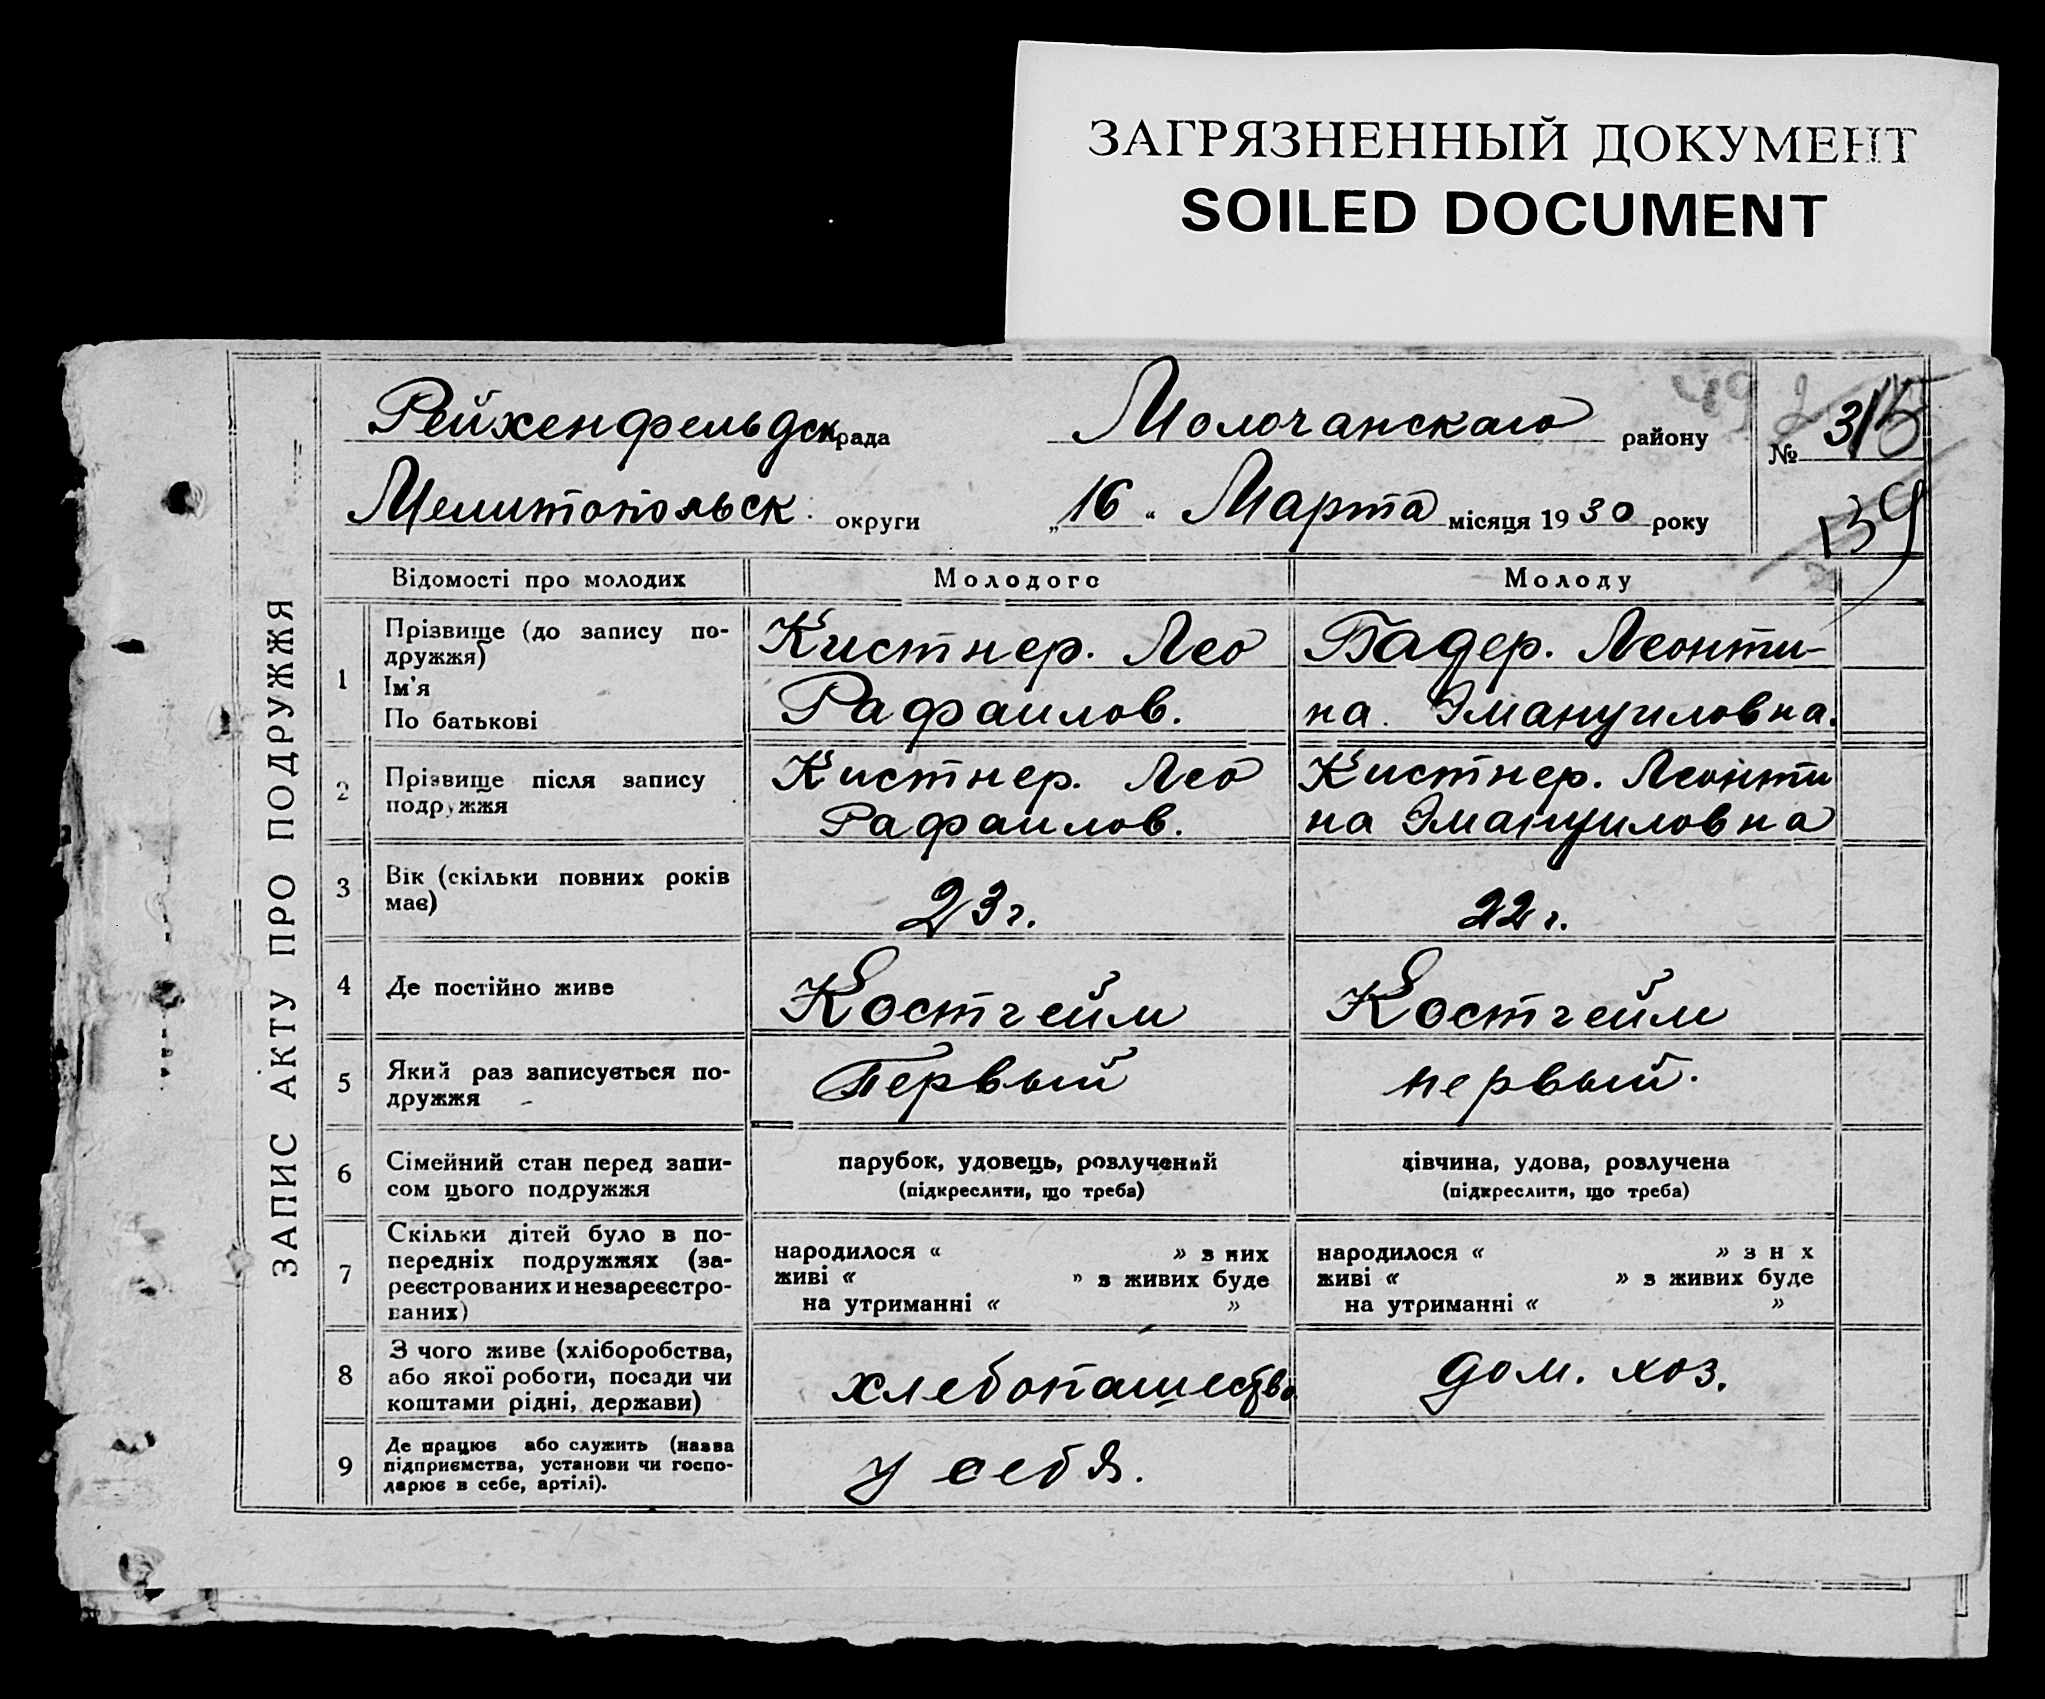 ЗАГРЯЗНЕННЫЙ ДОКУМЕНТ
SOILED DOCUMENT
ЗАПИС АКТУ ПРО ПОДРУЖЖЯ
Рейхенфельдск рада Молочанскаго району № 3
Мелитопольск. округи „16“ Марта місяця 1930 року
139
Відомості про молодих Молодого Молоду
1 Прізвище (до запису по-
дружжя)
Ім'я
По батькові
Кистнер. Лео
Рафаилов.
Бадер. Леонти-
на. Эмануиловна.
2 Прізвище після запису
подружжя
Кистнер. Лео
Рафаилов.
Кистнер. Леонти
на Эмануиловна
3 Вік (скільки повних років
має)
23 г.
22 г.
4 Де постійно живе
Костгейм
Костгейм
5 Який раз записується по-
дружжя
Первый
первый.
6 Сімейний стан перед запи-
сом цього подружжя
парубок, удовець, розлучений
(підкреслити, що треба)
дівчина, удова, розлучена
(підкреслити, що треба)
7 Скільки дітей було в по-
передніх подружжях (за-
реєстрованих и незареєстро-
ваних)
народилося « » з них
живі « » з живих буде
на утриманні « »
народилося « » з н х
живі « » з живих буде
на утриманні « »
8 З чого живе (хліборобства,
або якої роботи, посади чи
коштами рідні, держави)
хлебопашество
дом. хоз.
9 Де працює або служить (назва
підприємства, установи чи госпо-
дарює в себе, артілі).
у себя.